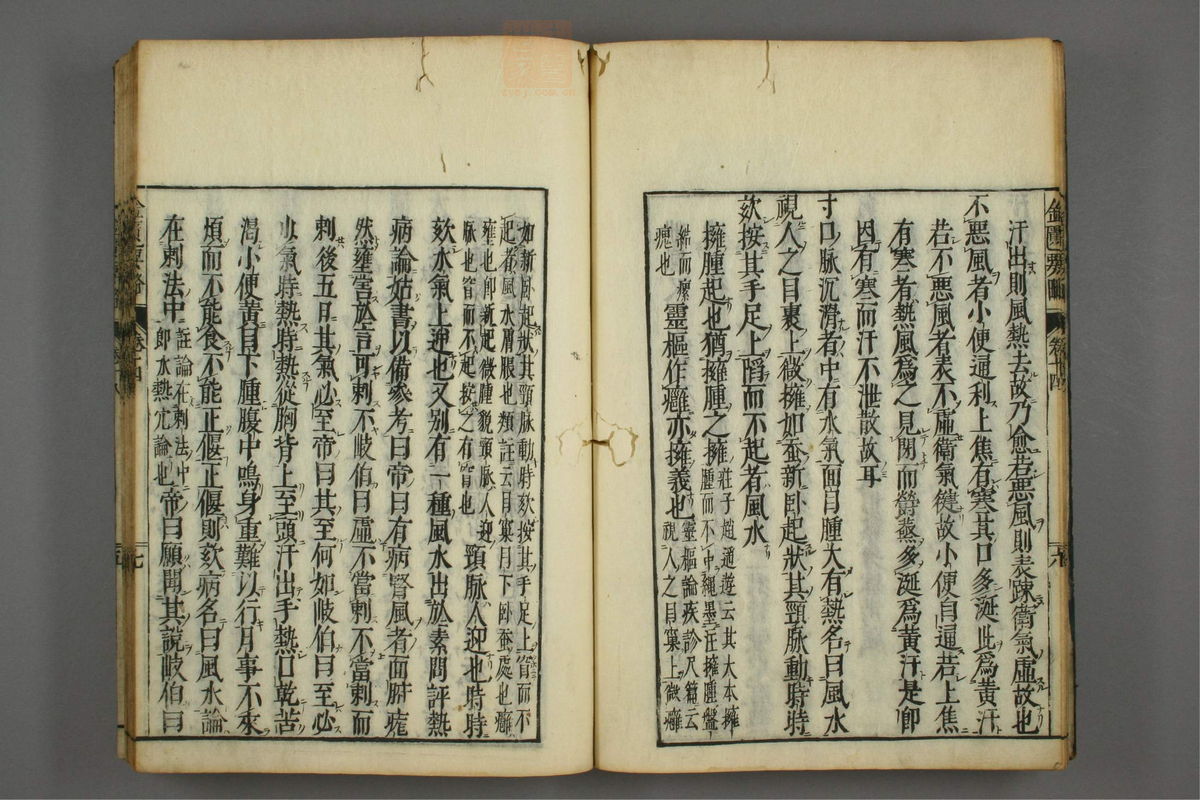 汗出則風熱去故乃愈若惡風則表踈衛氣虛故也
不惡風者小便通利上焦有寒其口多涎此爲黃汗
若不惡風者表不虛衛氣徤故小便自通若上焦
有寒者熱風爲之見閉而欝蒸多涎爲黃汗是卽
因有寒而汗不泄散故耳
寸口脉沉滑者中有水氣面目腫大有熱名曰風水
視人之目裹上微擁如蚕新卧起狀其頸脉動時時
欬按其手足上䧟而不起者風水
擁腫起也猶擁腫之擁
莊子逍遥遊云其大本擁
腫而不中䋲墨注擁腫盤
結而瘰
瘣也
靈樞作癰亦擁義也
靈樞論疾診尺篇云
視人之目窠上微癰
如新卧起狀其頸脉動時欬按其手足上窅而不
起者風水膚脹也類註云目窠目下卧蚕處也癰
壅也卽新起微腫貌頸脉人迎
脉也窅而不起按之有窅也
頸脉人迎也時時
欬水氣上迎也又别有一種風水出於素問評熱
病論姑書以備叅考曰帝曰有病腎風者面胕痝
然壅害於言可刺不歧伯曰虛不當刺不當刺而
刺後五日其氣必至帝曰其至何如歧伯曰至必
少氣時熱時熱從胸背上至頭汗出手熱口乾苦
渴小便黃目下腫腹中鳴身重難以行月事不來
煩而不能食不能正偃正偃則欬病名曰風水論
在刺法中
註論在刺法中
卽水熱宂論也
帝曰願聞其說歧伯曰
卷十四
六
七